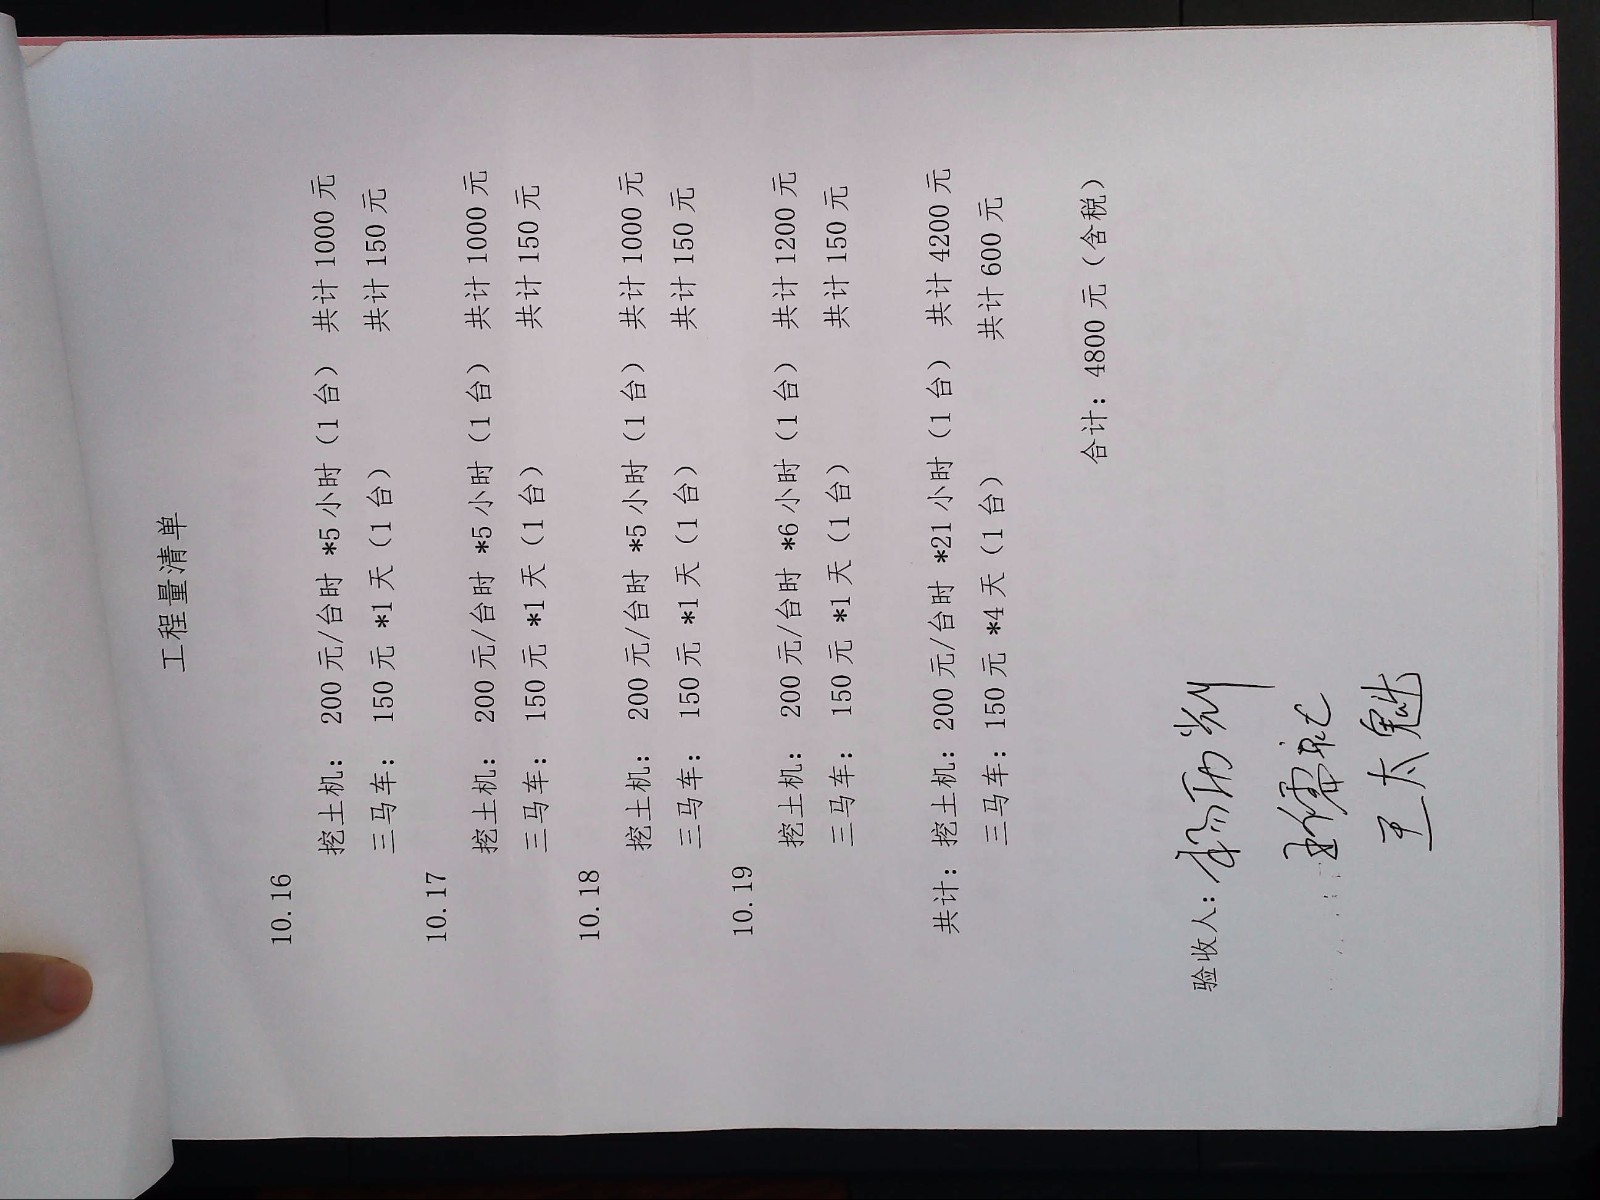 工程量清单
10.16
挖土机： 200 元/台时 *5 小时（1 台） 共计 1000 元
三马车： 150 元 *1 天（1 台） 共计 150 元
10.17
挖土机： 200 元/台时 *5 小时（1 台） 共计 1000 元
三马车： 150 元 *1 天（1 台） 共计 150 元
10.18
挖土机： 200 元/台时 *5 小时（1 台） 共计 1000 元
三马车： 150 元 *1 天（1 台） 共计 150 元
10.19
挖土机： 200 元/台时 *6 小时（1 台） 共计 1200 元
三马车： 150 元 *1 天（1 台） 共计 150 元
共计：挖土机：200 元/台时 *21 小时（1 台） 共计 4200 元
三马车：150 元 *4 天（1 台） 共计 600 元
合计： 4800 元（含税）
验收人：
王太魁